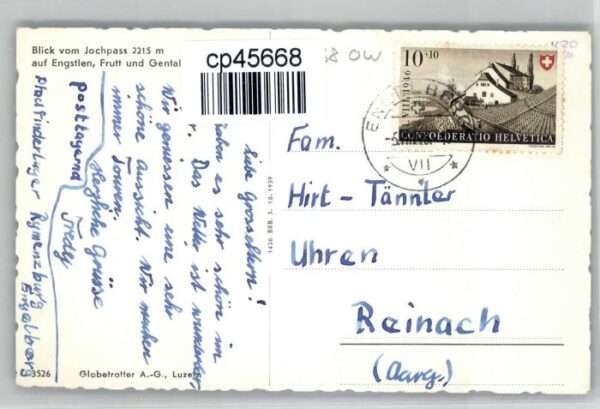 Blick vom Jochpass 2215 m
auf Engstlen, Frutt und Gental
cp45668
Liebe Grosseltern!
haben es sehr schön im
Das Wetter ist wunderbar,
Wir geniessen eine sehr
schöne Aussicht. Wir machen
immer Touren.
Herzliche Grüsse
Fredy
postlagernd
Pfadfinderlager Rymenzburg
Engelberg
1426 BRB. 3. 10. 1939
3526
Globetrotter A.-G., Luzern
OW
10+10
1946
CONFOEDERATIO HELVETICA
VII
Fam.
Hirt - Tännler
Uhren
Reinach
(Aarg.)